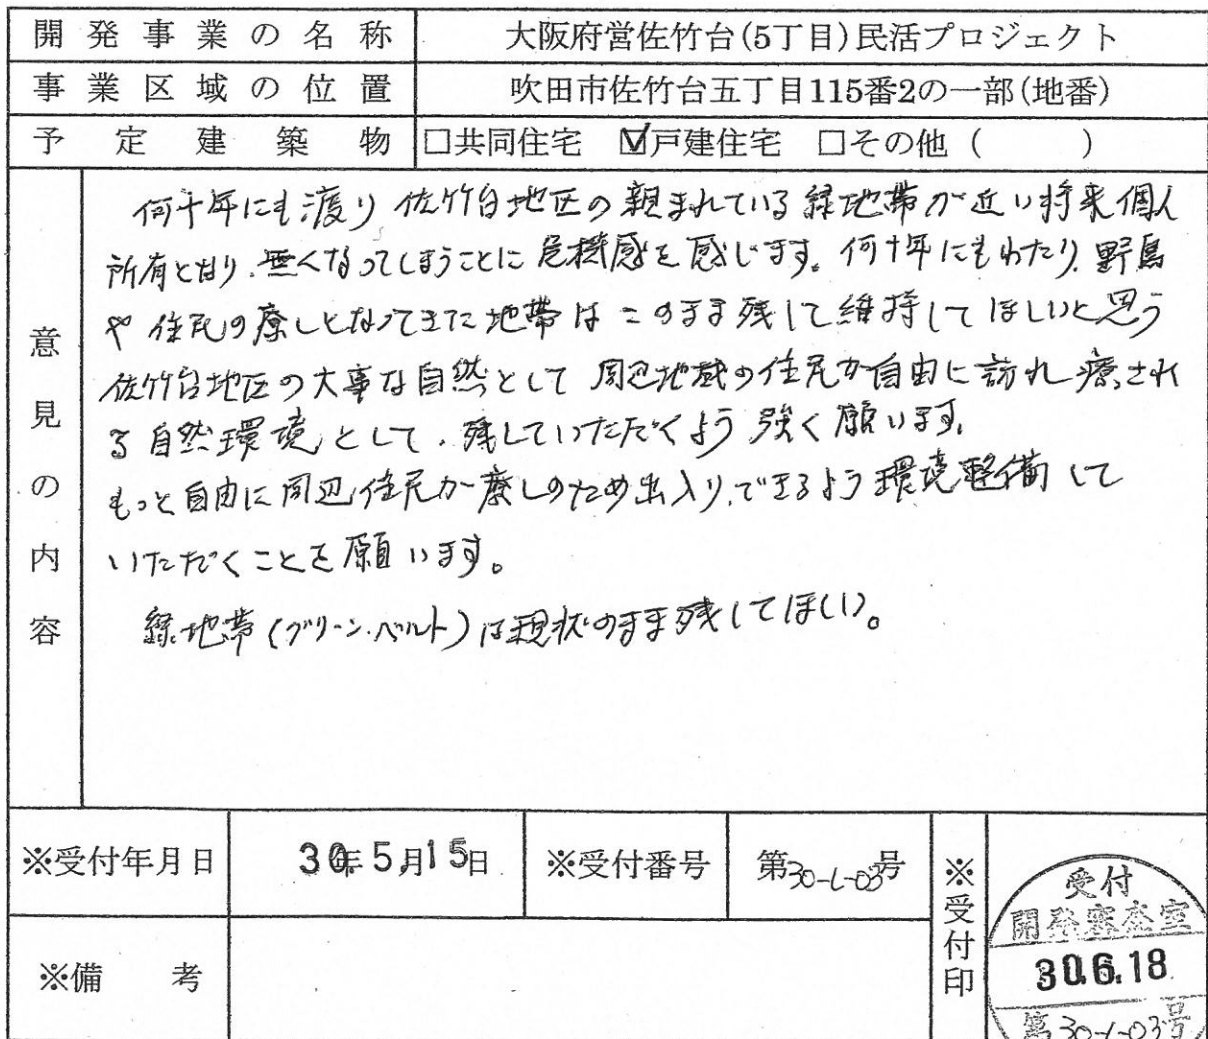 開発事業の名称 大阪府営佐竹台(5丁目)民活プロジェクト
事業区域の位置 吹田市佐竹台五丁目115番2の一部(地番)
予定建築物 □共同住宅 ☑戸建住宅 □その他 ( )
意見の内容
何十年にも渡り 佐竹台地区の親まれている緑地帯が近い将来個人
所有となり、無くなってしまうことに危機感を感じます。何十年にもわたり、野鳥
や 住民の癒しとなってきた地帯は このまま残して維持して ほしいと思う
佐竹台地区の大事な自然として 周辺地域の住民が自由に訪れ 癒され
る自然環境として、残していただくよう 強く願います。
もっと自由に周辺住民が癒しのため出入り、できるよう環境整備して
いただくことを願います。
緑地帯(グリーン・ベルト)は現状のまま残してほしい。
※受付年月日 30年5月15日 ※受付番号 第30-1-03号
※受付印
受付
開発審査室
30.6.18
第30-1-03号
※備 考